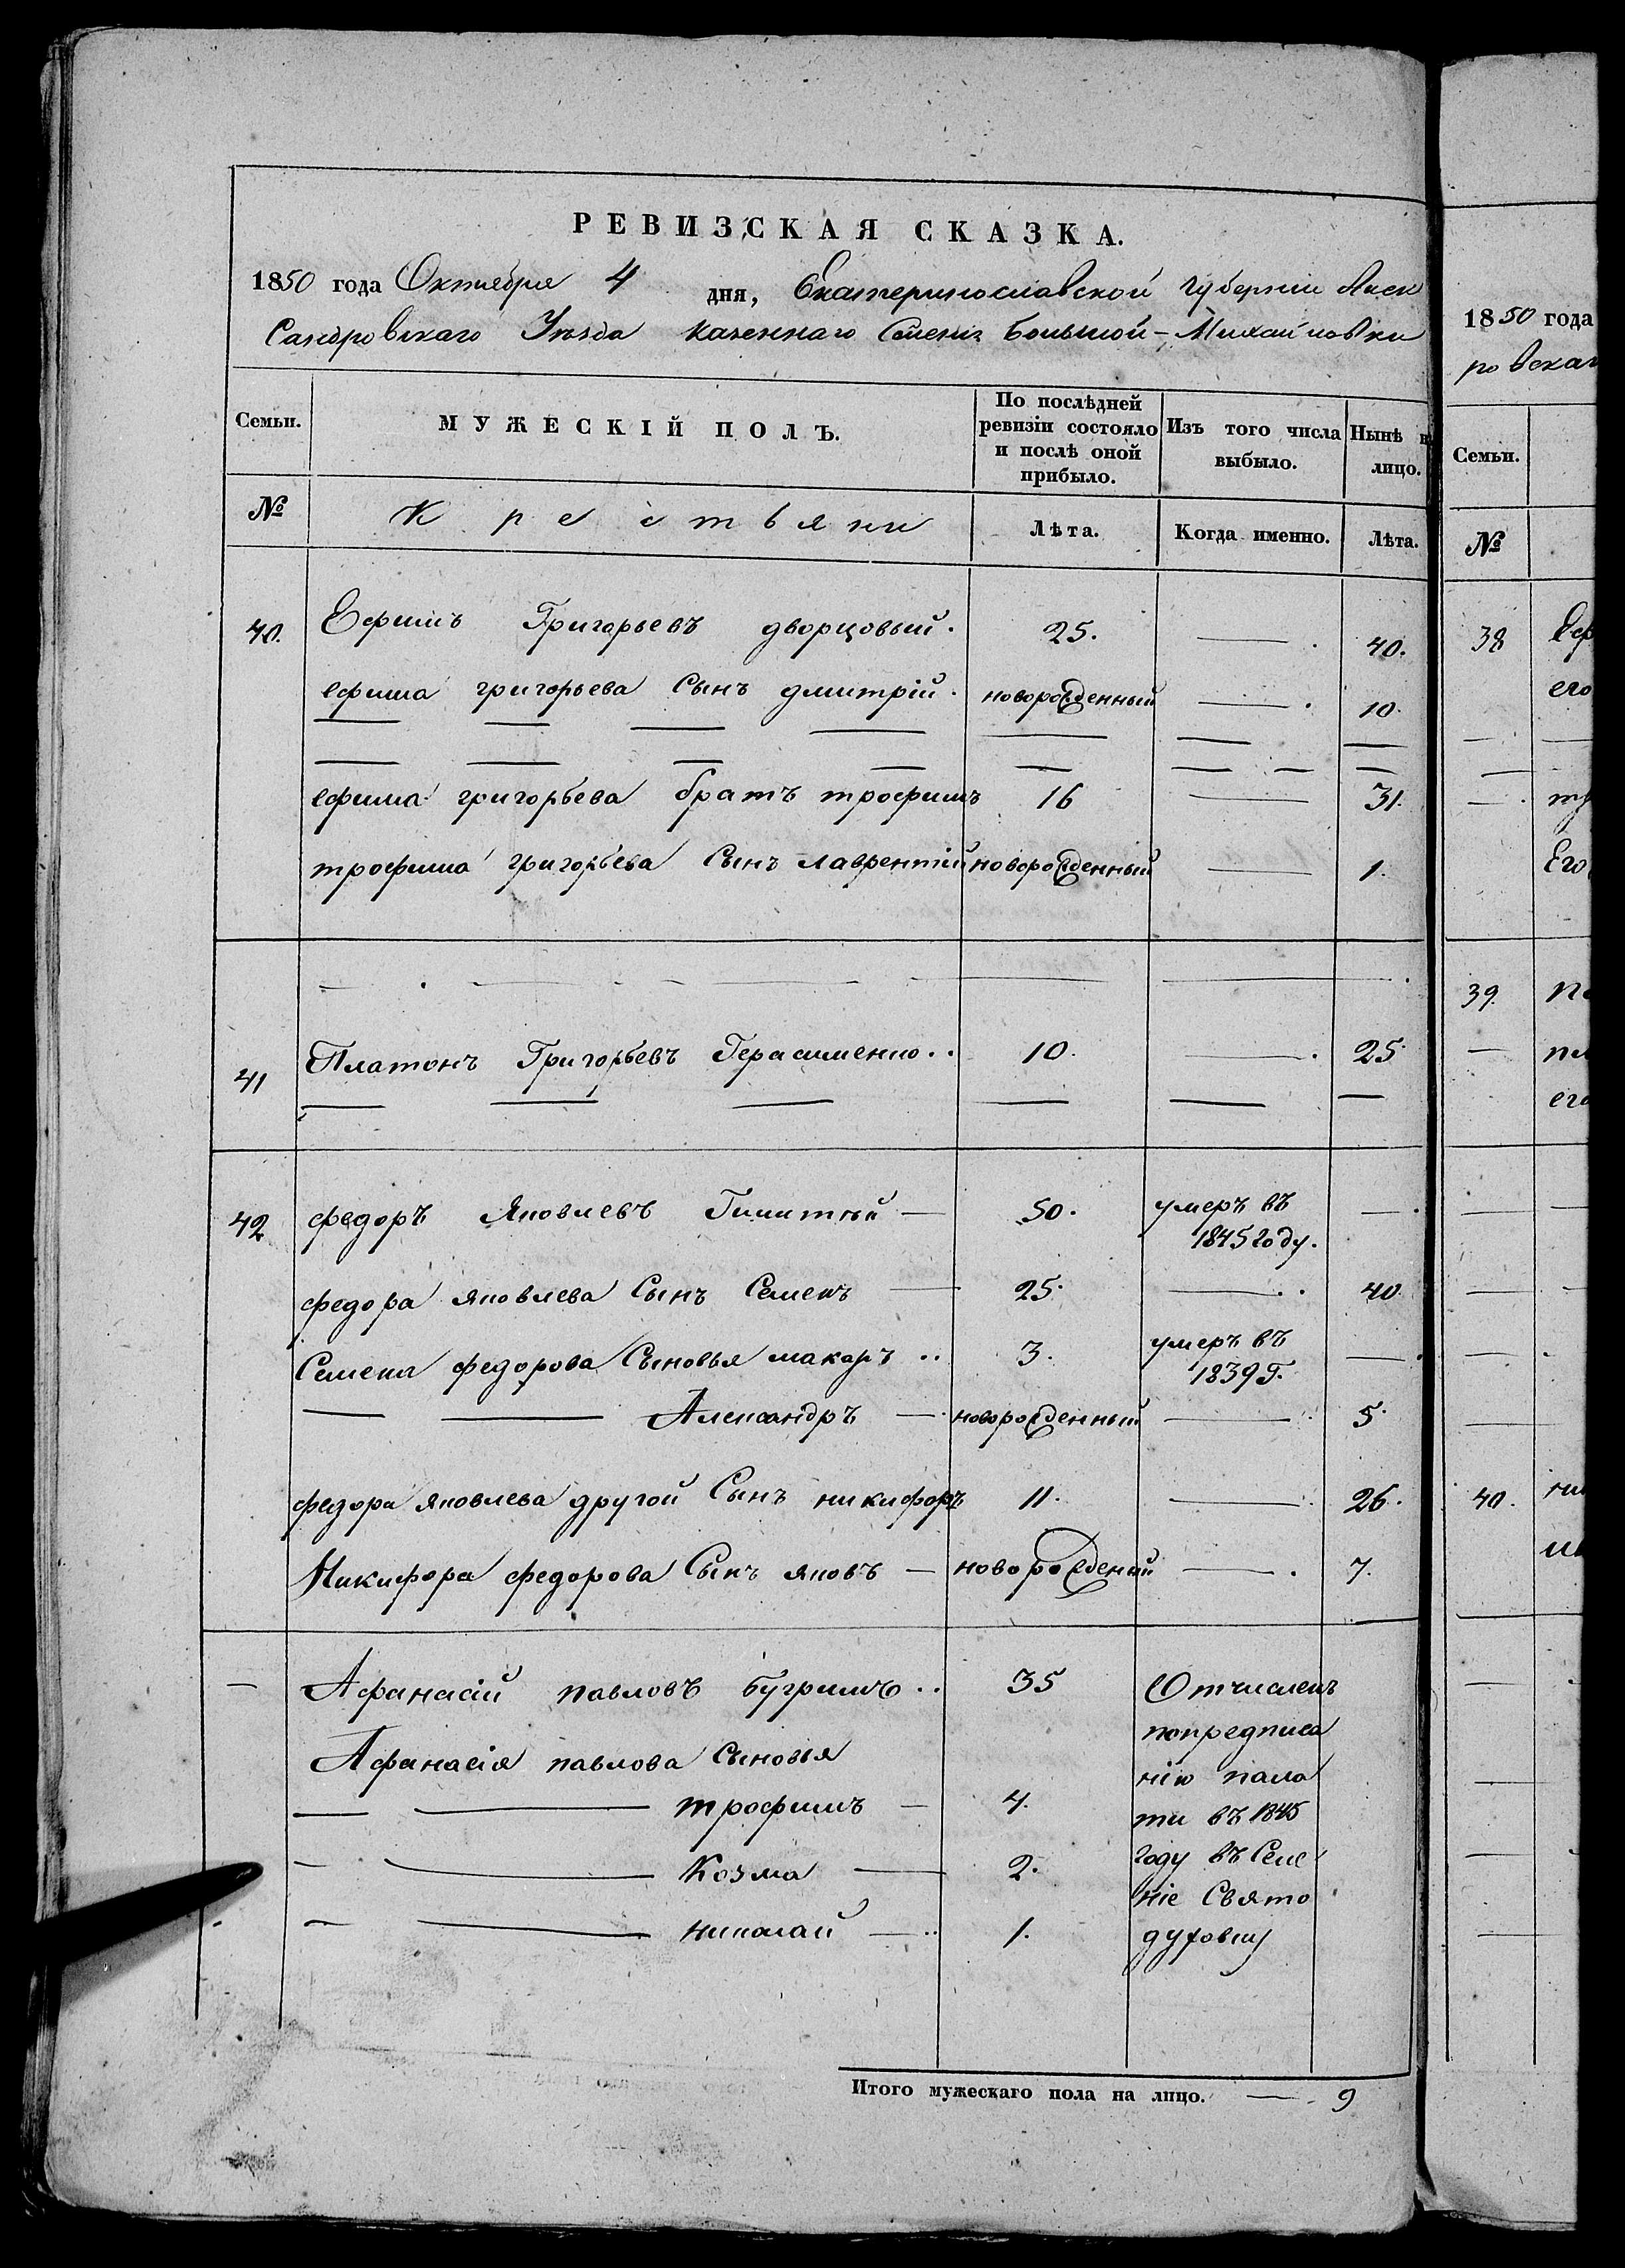 РЕВИЗСКАЯ СКАЗКА.
1850 года Октября 4 дня, Екатеринославской губернии Алек
Сандровскаго Уѣзда казеннаго Селенія Большой-Михайловки
Семьи. МУЖЕСКІЙ ПОЛЪ. По послѣдней ревизіи состояло и послѣ оной прибыло. Изъ того числа выбыло. Нынѣ н лицо.
№ Крестьяни Лѣта. Когда именно. Лѣта.
40. Ефимъ Григорьевъ дворцовый. 25. — . 40.
ефима григорьева Сынъ дмитрій. новорожденный — . 10.
ефима григорьева братъ трофимъ 16 — 31.
трофима григорьева Сынъ лаврентій новорожденный — 1.
41 Платонъ Григорьевъ Герасименко.. 10. — . 25.
42 федоръ Яковлевъ — 50. умеръ въ — .
1845 году.
федора яковлева Сынъ Семенъ — 25. — .. 40.
Семена федорова Сыновья макаръ .. 3. умеръ въ — .
1839 г.
— — Александръ — новорожденный — . 5.
федора яковлева другой Сынъ никифоръ 11. — . 26.
Никифора федорова Сынъ яковъ — новорожденый — . 7.
— Афанасій павловъ бугримъ.. 35 Отчисленъ
попредписа
Афанасія павлова Сыновья
нію пала
— — трофимъ — 4.
ти въ 1845
— — Козма — 2. году въ Селе
ніе Свято
— — николай — .. 1. духовку
Итого мужескаго пола на лицо. — . 9
1850 года
ровскаг
Семьи.
№
38 Еф
его
—
Его
39.
—
его
40.